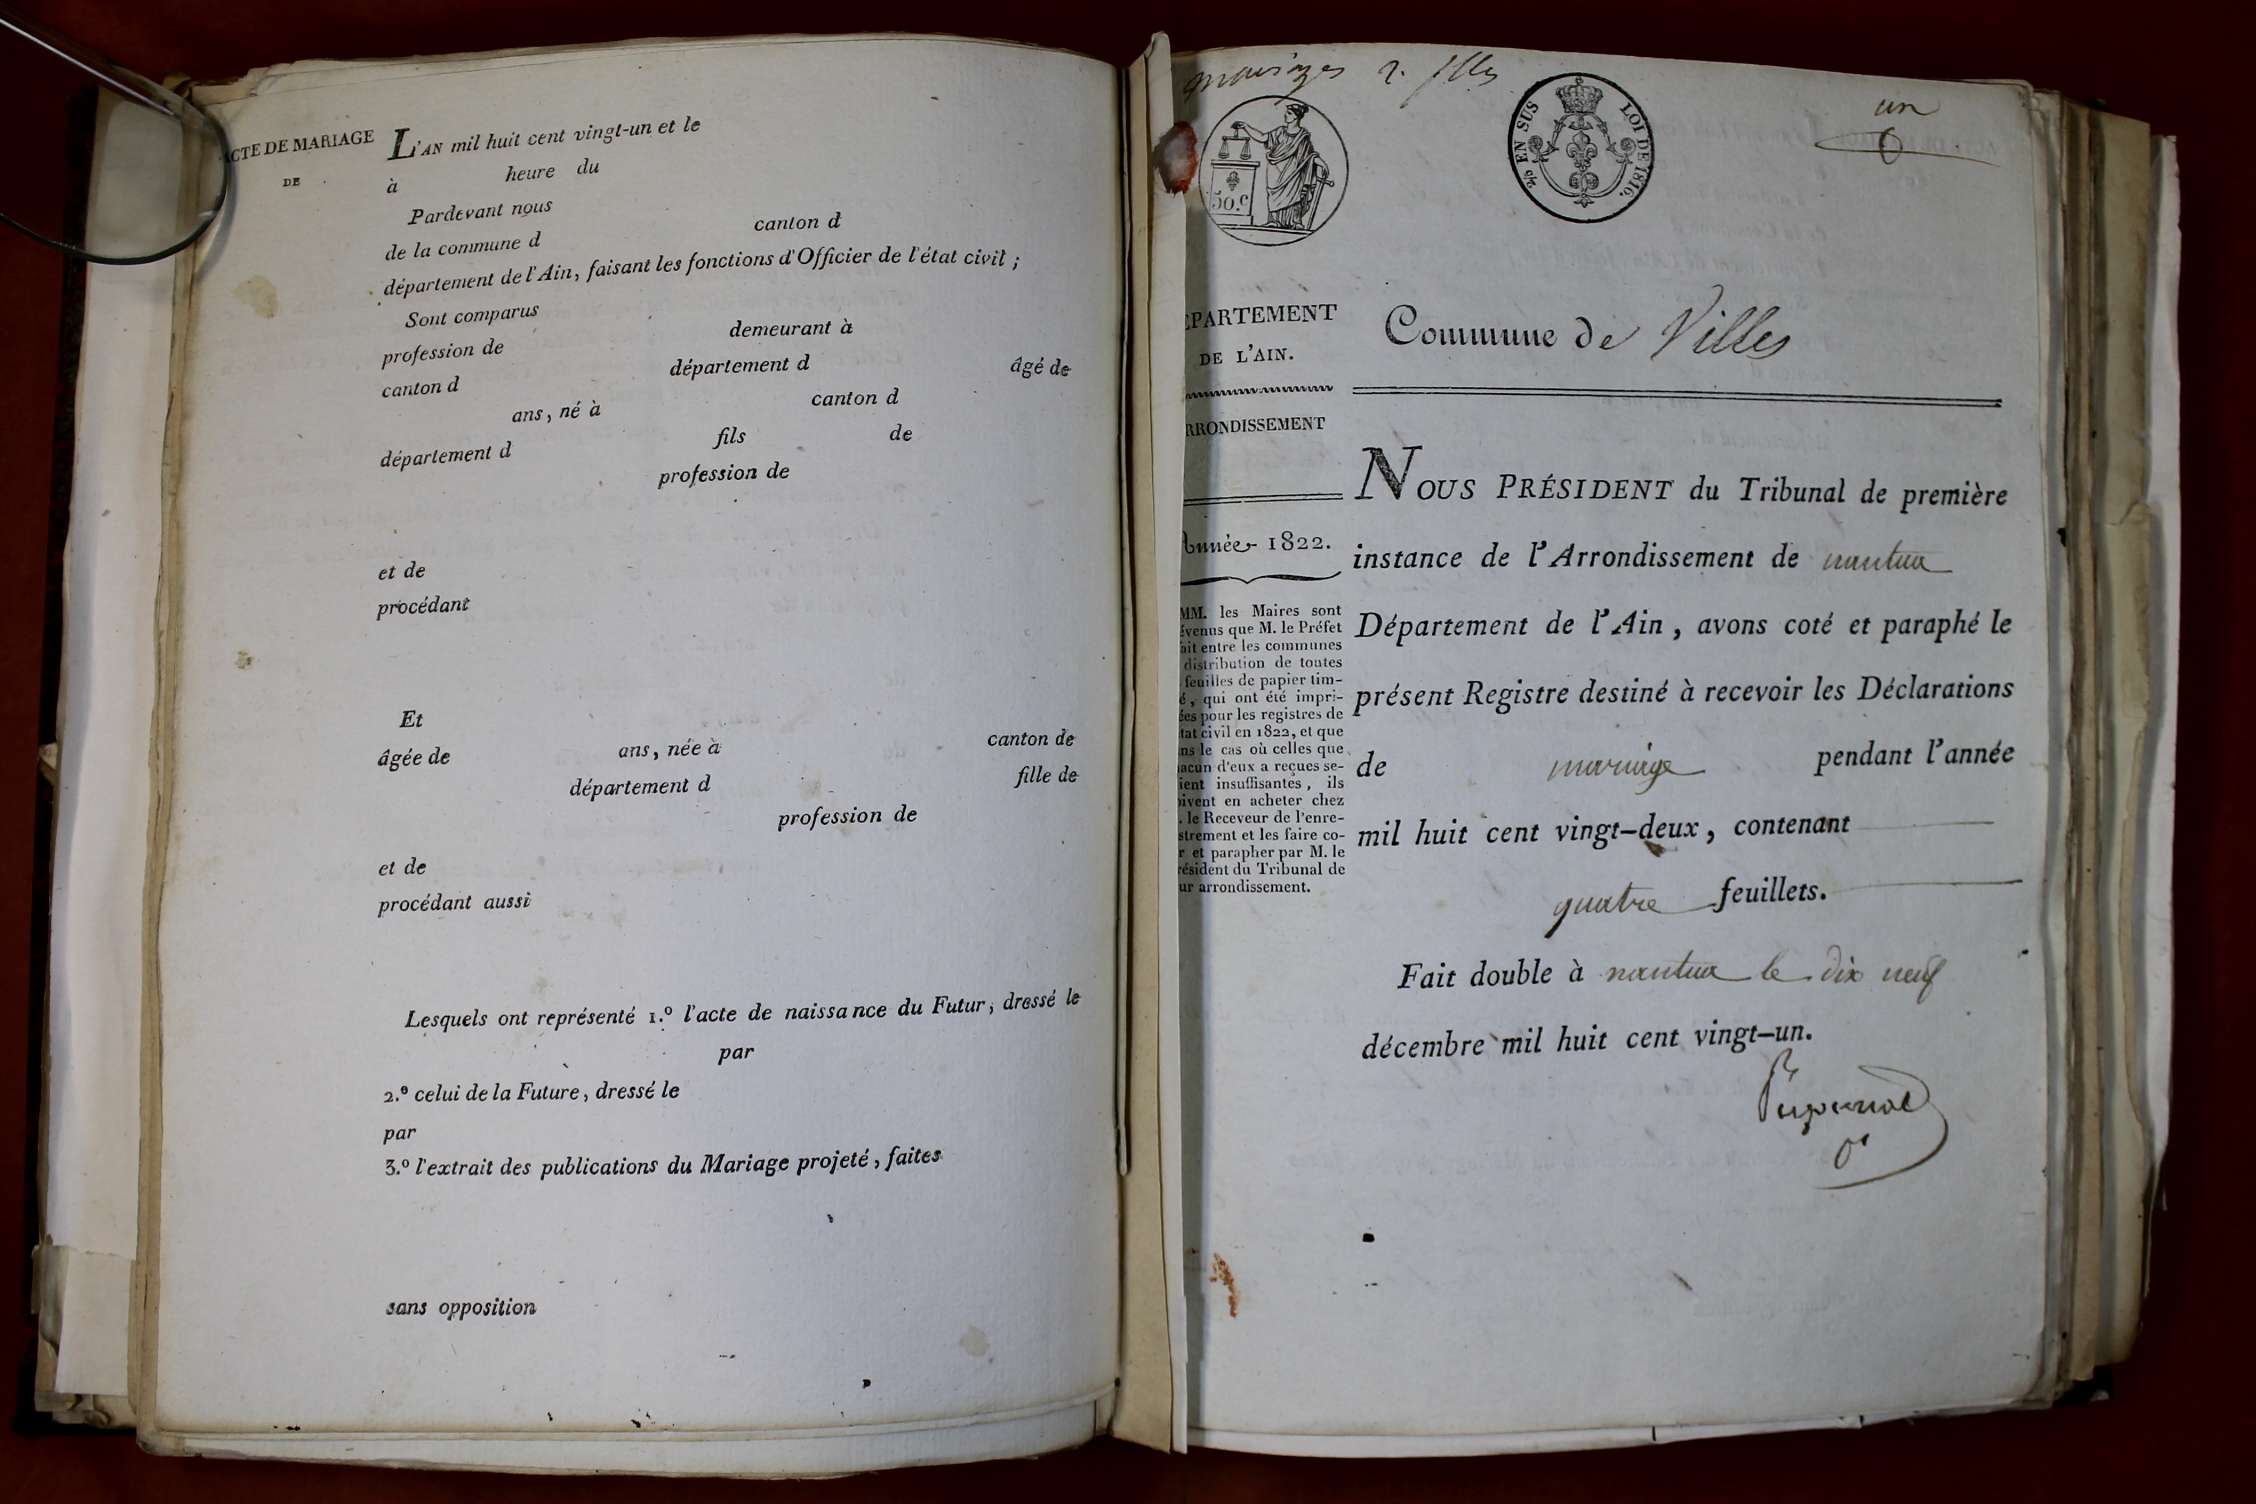 ACTE DE MARIAGE
DE
L'AN mil huit cent vingt-un et le
à heure du
Pardevant nous
de la commune d canton d
département de l'Ain, faisant les fonctions d'Officier de l'état civil ;
Sont comparus
profession de demeurant à
canton d département d âgé de
ans, né à canton d
département d fils de
profession de
et de
procédant
Et
âgée de ans, née à canton de
département d fille de
profession de
et de
procédant aussi
Lesquels ont représenté 1.º l'acte de naissance du Futur, dressé le
par
2.º celui de la Future, dressé le
par
3.º l'extrait des publications du Mariage projeté, faites
sans opposition
mariages 2. flles
50.c
2/0 EN SUS LOI DE 1816.
un
EPARTEMENT
DE L'AIN.
RRONDISSEMENT
Année 1822.
MM. les Maires sont
évenus que M. le Préfet
ait entre les communes
distribution de toutes
feuilles de papier tim-
é, qui ont été impri-
ées pour les registres de
tat civil en 1822, et que
ns le cas où celles que
acun d'eux a reçues se-
ient insuffisantes, ils
oivent en acheter chez
. le Receveur de l'enre-
strement et les faire co-
r et parapher par M. le
résident du Tribunal de
ur arrondissement.
Commune de Villes
NOUS PRÉSIDENT du Tribunal de première
instance de l'Arrondissement de nantua
Département de l'Ain, avons coté et paraphé le
présent Registre destiné à recevoir les Déclarations
de mariage pendant l'année
mil huit cent vingt-deux, contenant
quatre feuillets.
Fait double à nantua le dix neuf
décembre mil huit cent vingt-un.